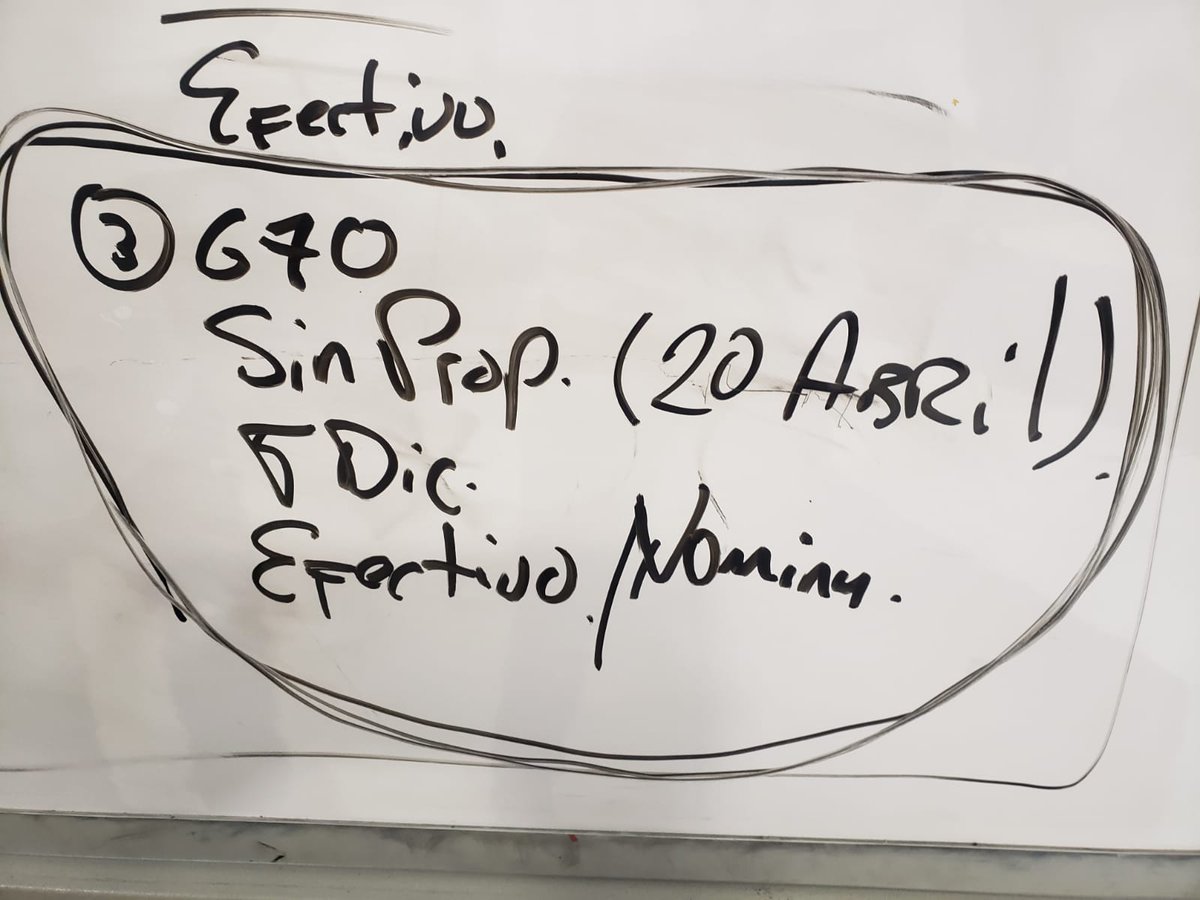 Efectivo.
③ G70
Sin Prop. (20 Abril).
5 Dic.
Efectivo. / Nomina.